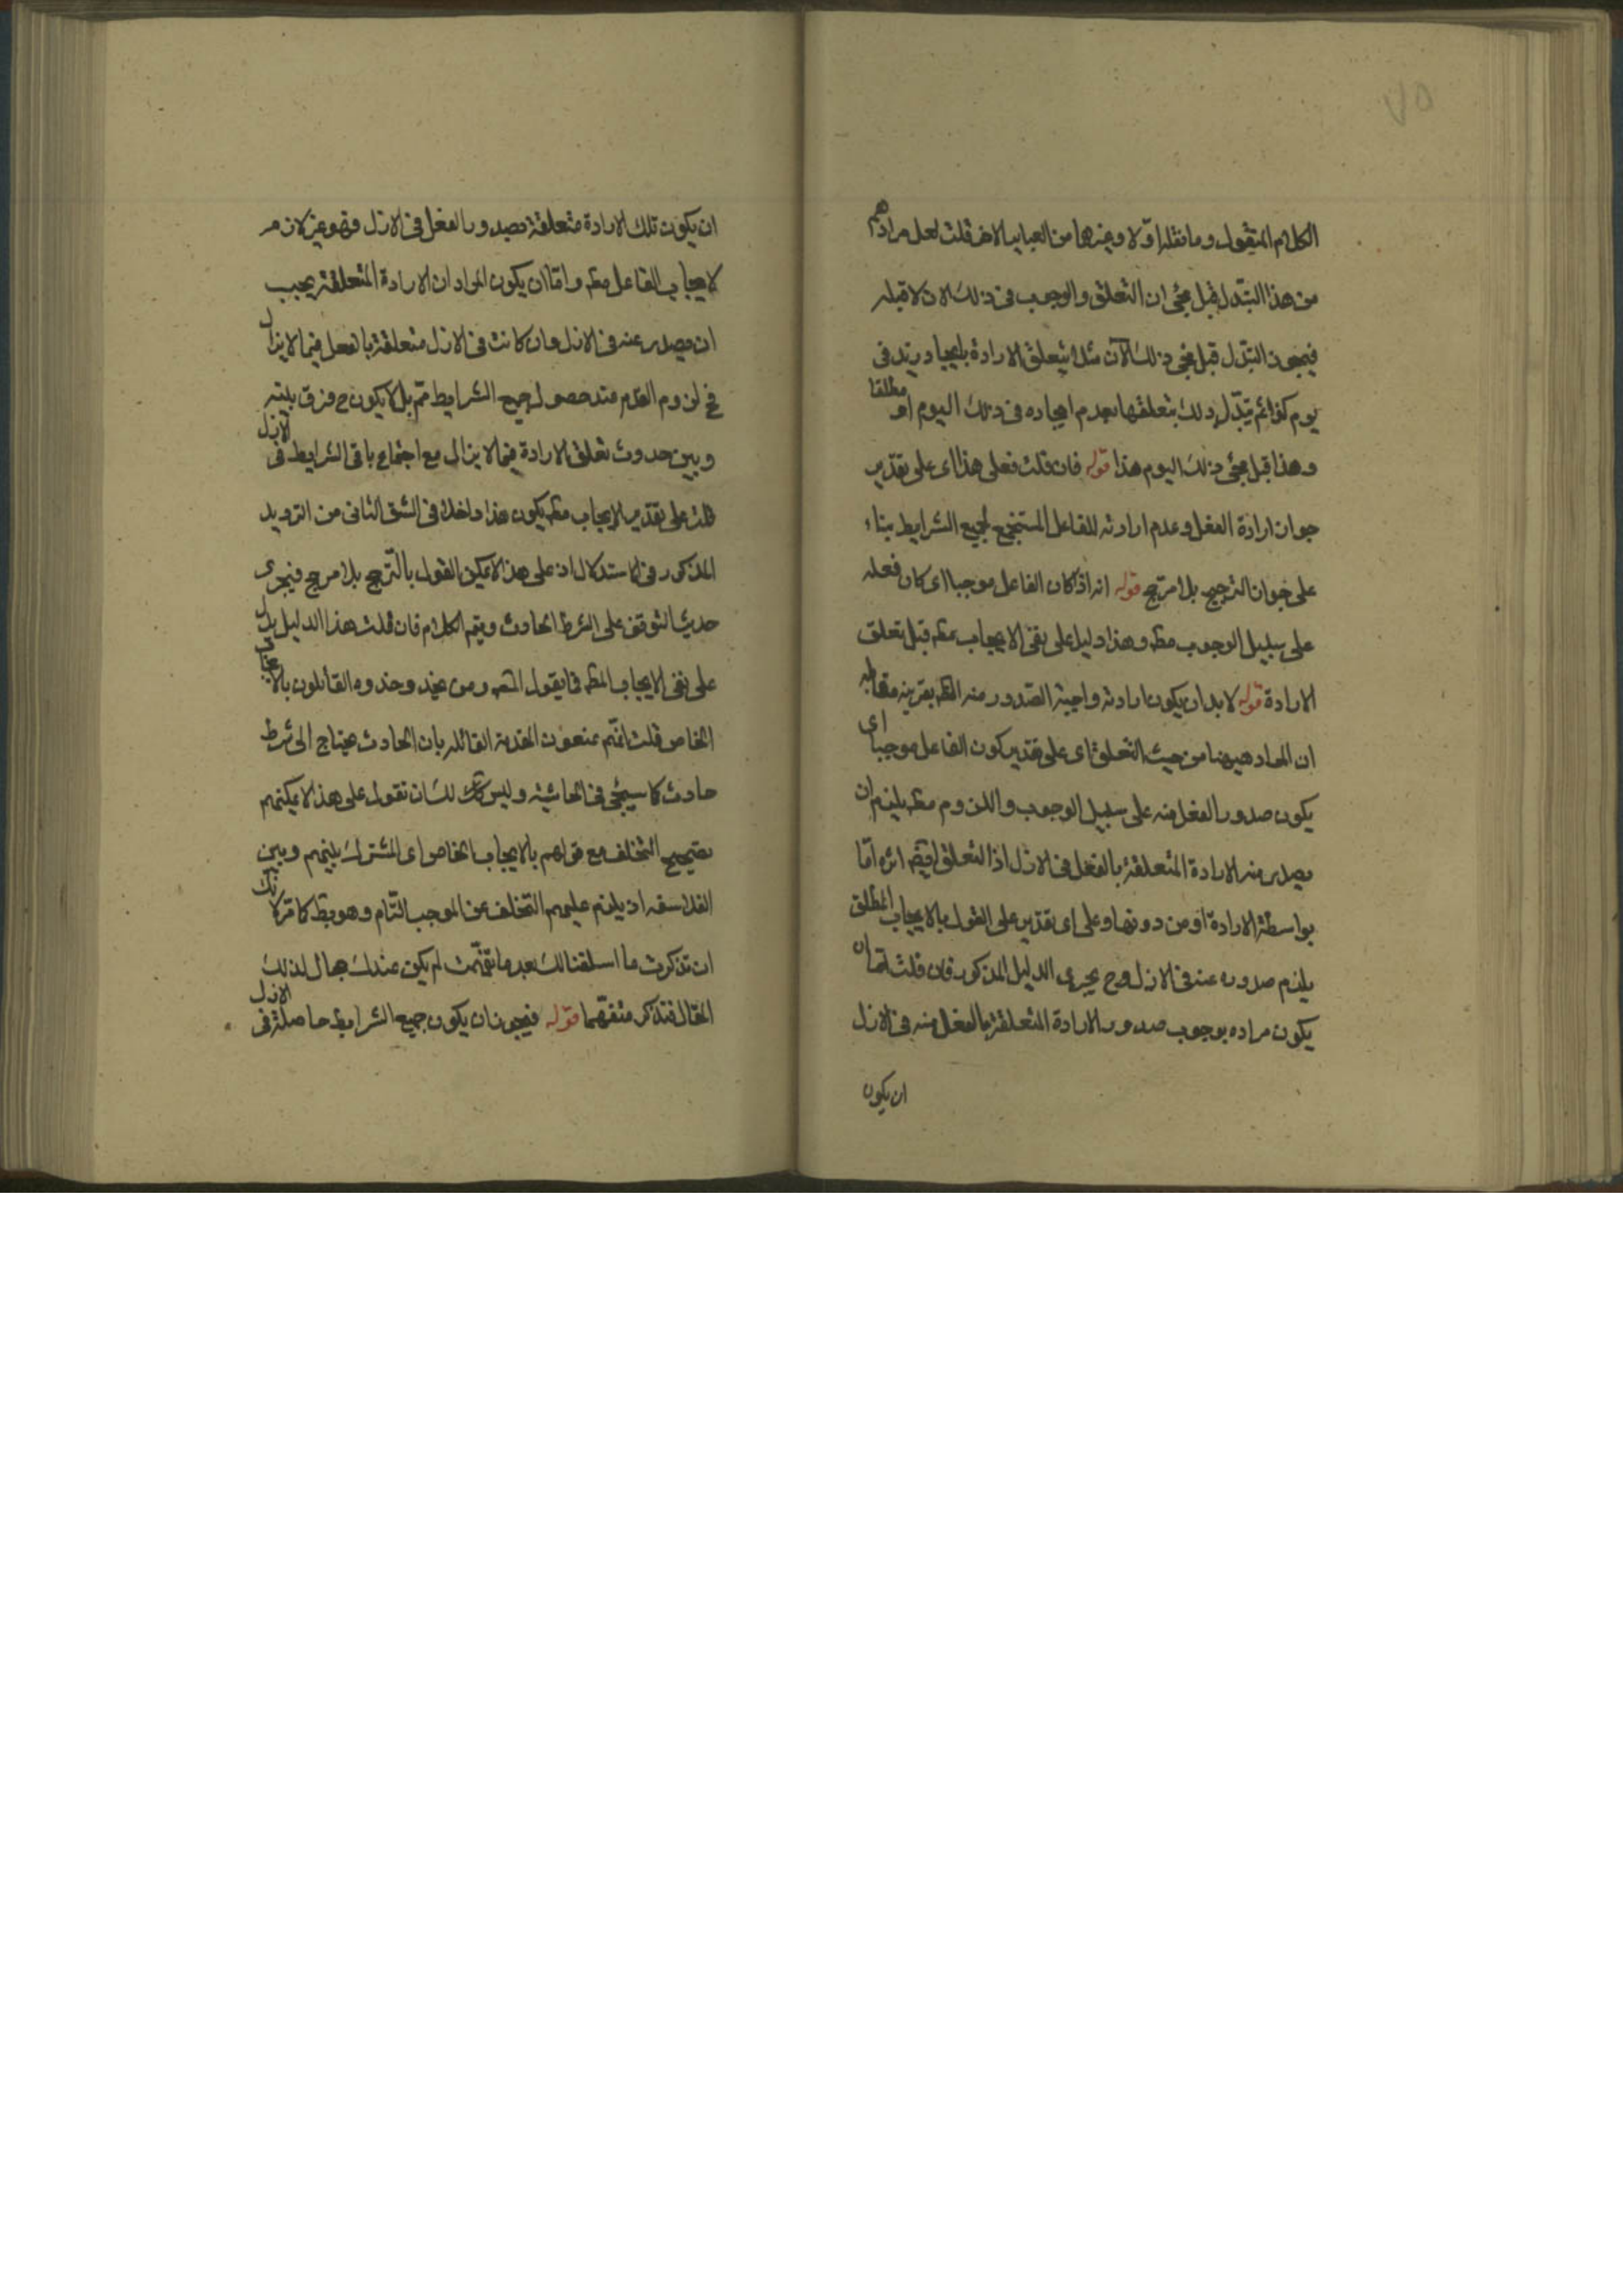 الكلام المنقول وما نقله اولا وغيرها من العباير الاخر قلت لعل مرادهم
من هذا التبدل قبل مجئ ان التعلق والوجوب فى ذلك الان لا قبله
فيجوز التبدل قبل مجئ ذلك الآن مثلا يتعلق الارادة بايجاد زيد فى
يوم كذا ثم يتبدل ذلك بتعلقها بعدم ايجاده فى ذلك اليوم او مطلقا
وهذا قبل مجئ ذلك اليوم هذا قوله فان قلت فعلى هذا اى على تقدير
جواز ارادة الفعل وعدم ارادته للفاعل المستجمع لجميع الشرايط بناء
على جواز الترجيح بلا مرجح قوله انه اذا كان الفاعل موجبا اى كان فعله
على سبيل الوجوب مطـ وهذا دليل على نفى الايجاب مطـ قبل تعلق
الارادة قوله لا بد ان يكون ارادته واجبة الصدور منه الظـ بقرينه مقابله
ان المراد هيهنا من حيث التعلق اى على تقدير كون الفاعل موجبا اى
يكون صدور الفعل منه على سبيل الوجوب واللزوم مطـ يلزم ان
يصدر منه الارادة المتعلقة بالفعل فى الازل اذا التعلق اثره اما
بواسطة الارادة او من دونها وعلى اى تقدير على القول بالايجاب المطلق
يلزم صدوره عنه فى الازل وح يجرى الدليل المذكور فان قلت اما ان
يكون مراده بوجوب صدور الارادة المتعلقة بالفعل منه فى الازل
ان يكون
ان يكون تلك الارادة متعلقة بصدور الفعل فى الازل فهو غير لازم
لايجاب الفاعل مطـ واما ان يكون المراد ان الارادة المتعلقة يجب
ان يصدر عنه فى الازل وان كانت فى الازل متعلقة بالفعل فيما لا يزال
فح لزوم القدم عند حصول جميع الشرايط مم بل لا يكون ح فرق بينه
وبين حدوث تعلق الارادة فيما لا يزال مع اجتماع باقى الشرايط فى الازل
قلت على تقدير الايجاب مطـ يكون هذا داخلا فى الشق الثانى من الترديد
المذكور فى الاستدلال اذ على هذا لا يمكن القول بالترجيح بلا مرجح فيجرى
حديث التوقف على الشرط الحادث ويتم الكلام فان قلت هذا الدليل يدل
على نفى الايجاب المطـ فما يقول المصـ ومن يحذو حذوه القائلون بالايجاب
الخاص قلت انهم يمنعون المقدمة القائله بان الحادث يحتاج الى شرط
حادث كما سيجئ فى الحاشية وليس لك ان تقول على هذا لا يمكنهم
تصحيح التخلف مع قولهم بالايجاب الخاص اى المشترك بينهم وبين
الفلاسفه اذ يلزم عليهم التخلف عن الموجب التام وهو بط كما مر لانك
ان تذكرت ما اسلفنا لك بعد ما تفهمت لم يكن عندك مجال لذلك
المقال فتذكر متفهما قوله فيجوز ان يكون جميع الشرايط حاصلة فى الازل